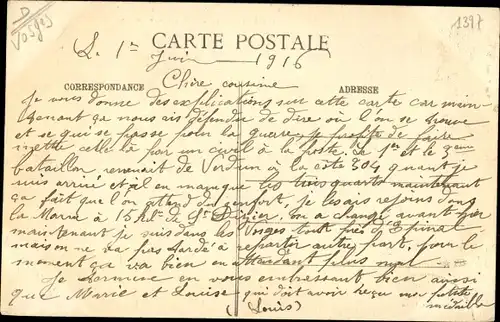 D
Vosges
1397
CARTE POSTALE
L. 1er Juin 1916
CORRESPONDANCE
ADRESSE
Chère cousine
Je vous donne des explications sur cette carte car main
tenant ça nous ais défendu de dire où l'on se trouve
et se qui se passe pour la guerre je profite de faire
mettre celle là par un civil à la poste. Le 1er et le 3eme
bataillon revenait de Verdun à la côte 304 quant je
suis arrivé et il en manque les trois quarts maintenant
ça fait que l'on attend du renfort, je les ais rejoins dans
la Marne à 15 kl. de St Dizier, on a changé avant hier
maintenant je suis dans les Vosges tout près d'Epinal
mais on ne va pas tarder à repartir autre part, pour le
moment ça va bien en attendant plus mal
Je termine en vous embrassant bien ainsi
que Marie et Louise qui doit avoir reçu ma petite
médaille
(Louis)